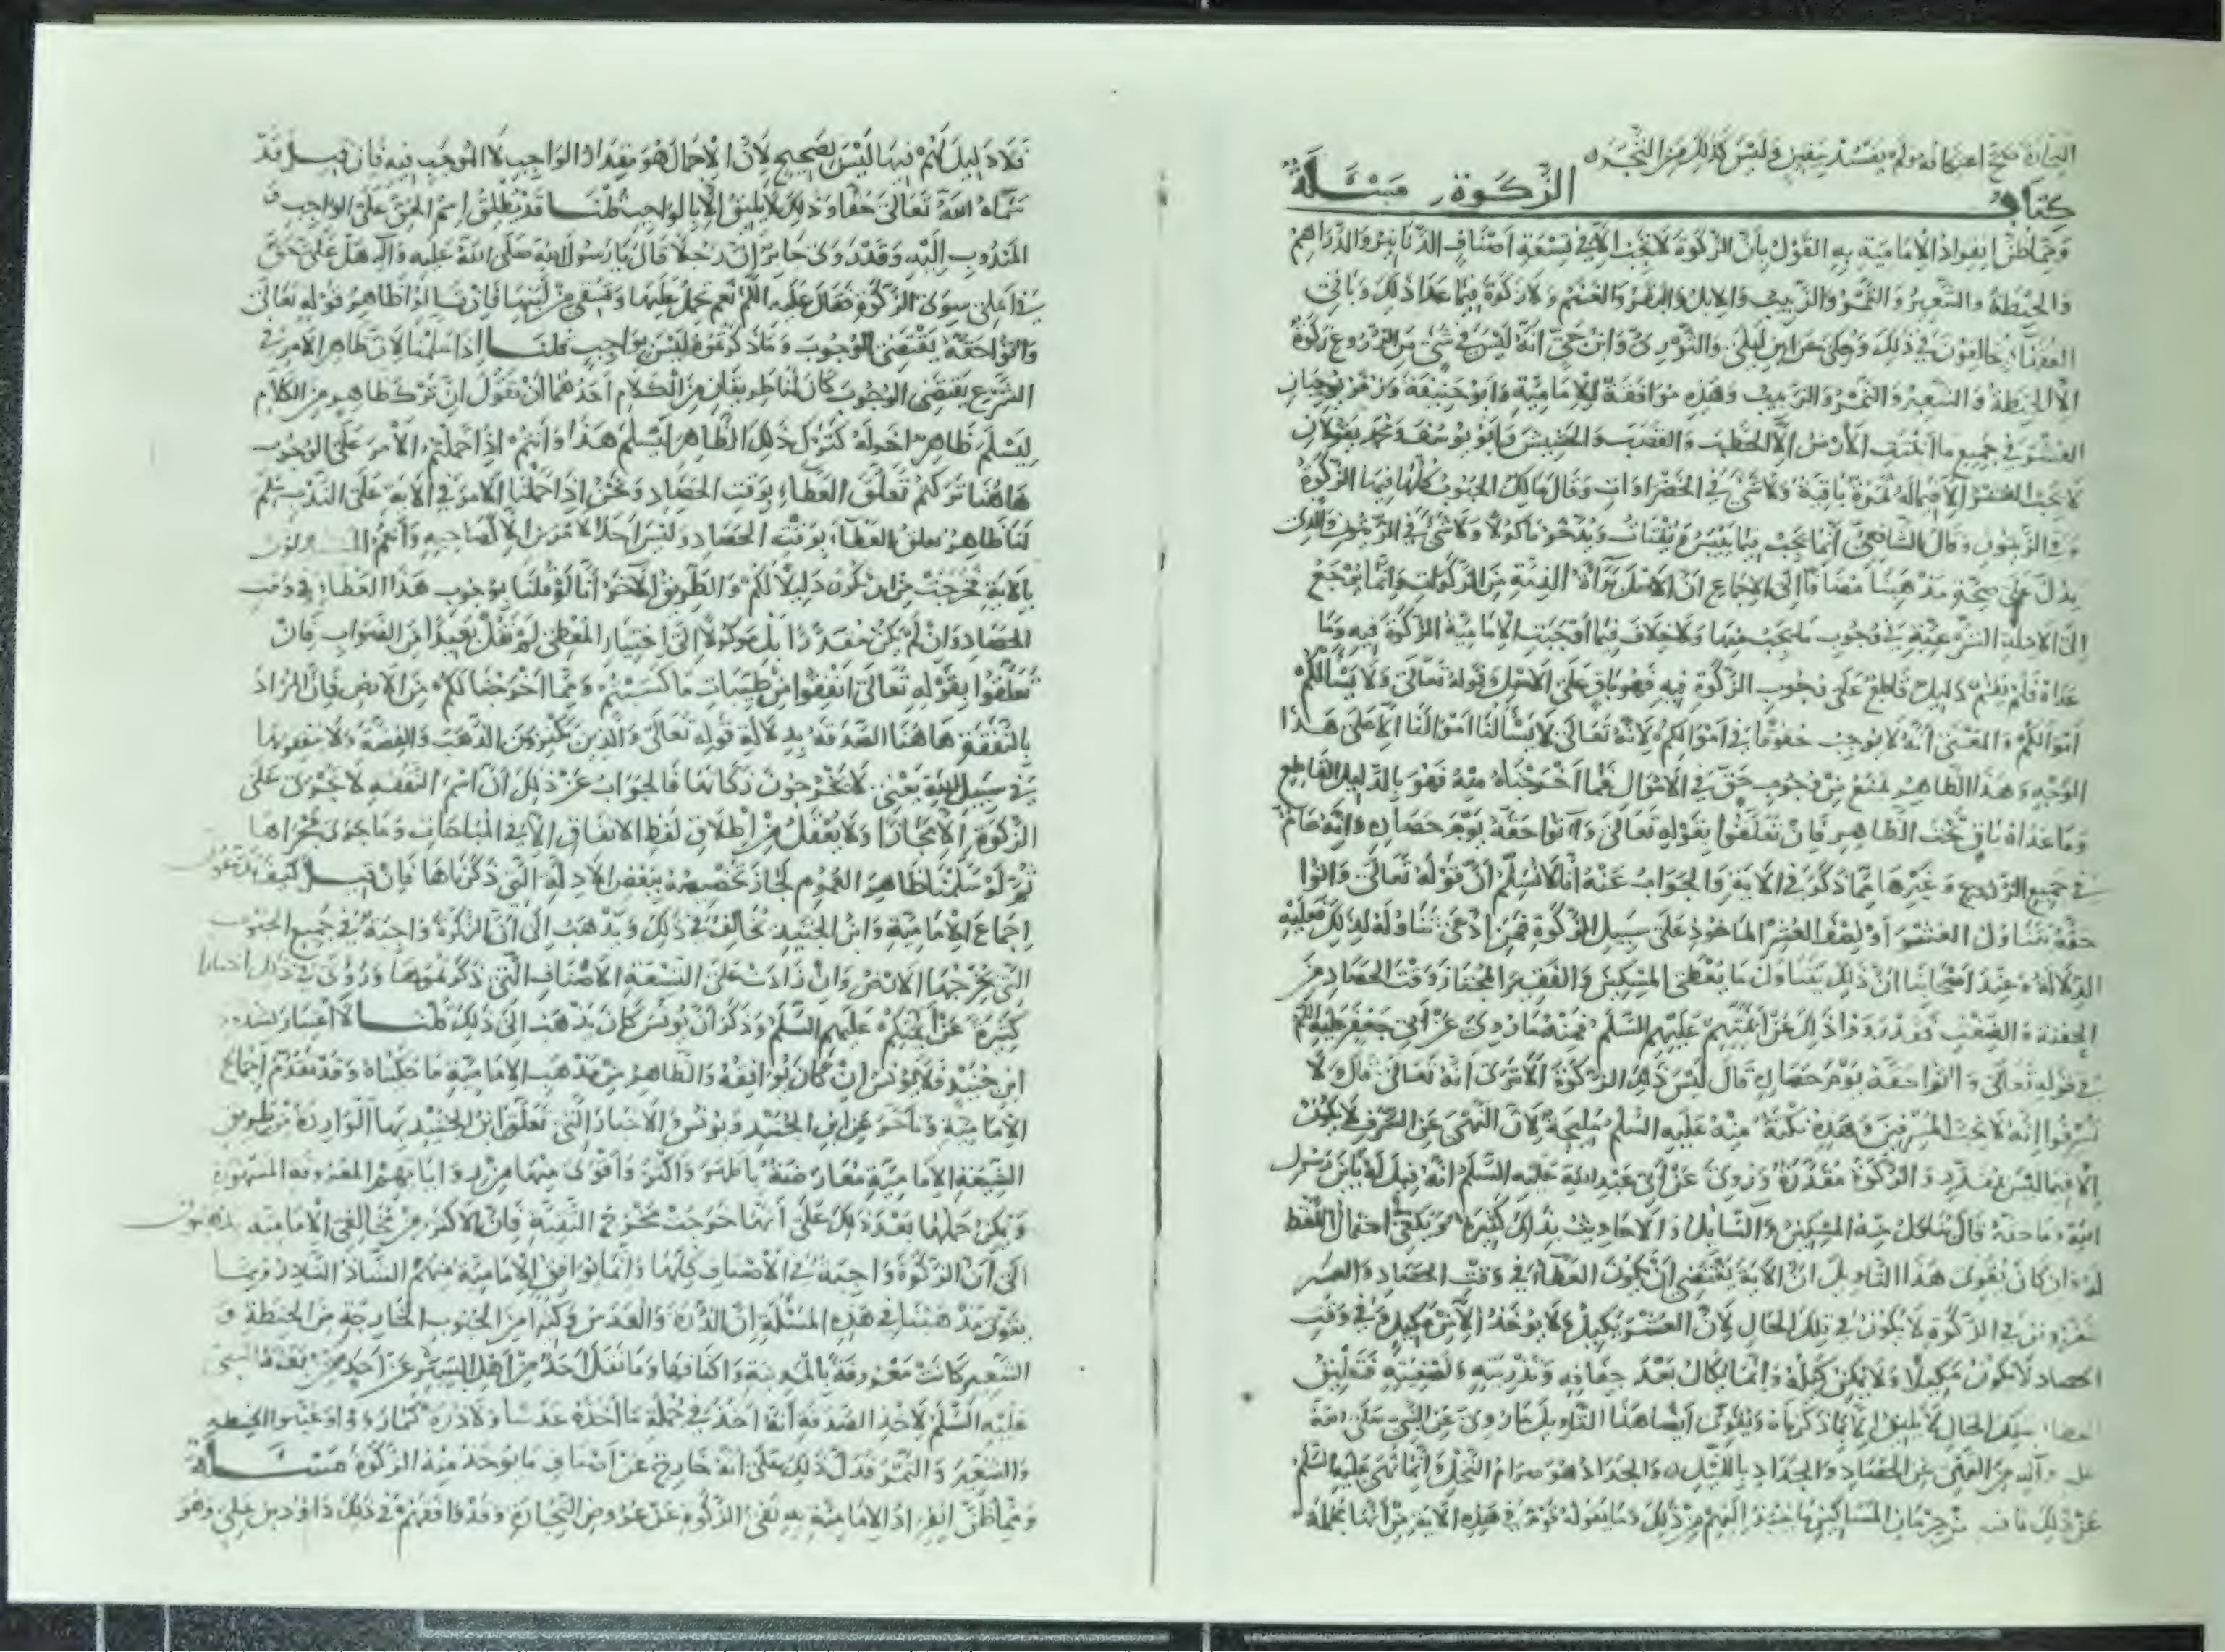 صح اعتكافه ولم يفسد بيقين وليس كذلك من
كتاب الزكوة مسئلة
ومما ظن انفراد الامامية به القول بأن الزكوة لا تجب الا في تسعة اصناف الدنانير والدراهم
والحنطة والشعير والتمر والزبيب والابل والبقر والغنم ولا زكوة فيما عدا ذلك وباقي
الفقهاء يخالفون في ذلك وحكي عن ابن ليلى والثوري وابن حي انه ليس في شيء من الزروع زكوة
الا الحنطة والشعير والتمر والزبيب وهذه موافقة للامامية وابو حنيفة وزفر يوجبان
العشر في جميع ما انبتت الارض الا الحطب والقصب والحشيش وابو يوسف ومحمد يقولان
لا يجب العشر الا فيما له ثمرة باقية ولا شيء في الخضراوات وقال مالك الحبوب كلها فيها الزكوة
وفي الزيتون وقال الشافعي انما تجب فيما ييبس ويقتات ويدخر مأكولا ولا شيء في الزيتون والذي
يدل على صحة مذهبنا مضافا الى الاجماع ان الاصل براءة الذمة من الزكوات وانما يرجع
الى الادلة الشرعية في وجوب ما يجب منها ولا خلاف فيما اوجبت الامامية الزكوة فيه وما
عداه فلم يقم دليل قاطع على وجوب الزكوة فيه فهو باق على الاصل وقوله تعالى ولا يسألكم
اموالكم والمعنى انه لا يوجب حقوقا في اموالكم لانه تعالى لا يسألنا اموالنا الا على هذا
الوجه وهذا الظاهر يمنع من وجوب حق في الاموال فما اخرجناه منه فهو بالدليل القاطع
وما عداه باق تحت الظاهر فان تعلقوا بقوله تعالى وآتوا حقه يوم حصاده وانه عام
في جميع الزروع وغيرها مما ذكر في الآية والجواب عنه انا لا نسلم ان قوله تعالى وآتوا
حقه يتناول العشر او نصف العشر الماخوذ على سبيل الزكوة فمن ادعى تناوله لذلك فعليه
الدلالة وعند اصحابنا ان ذلك يتناول ما يعطى المسكين والفقير المجتاز وقت الحصاد من
الحفنة والضغث فقد رووا ذلك عن أئمتهم عليهم السلم فمنه ما روي عن ابي جعفر عليه السلم
في قوله تعالى وآتوا حقه يوم حصاده قال ليس ذلك الزكوة الا ترى انه تعالى قال ولا
تسرفوا انه لا يحب المسرفين وهذه نكتة منه عليه السلم مليحة لان النهي عن السرف لا يكون
الا فيما ليس بمقدر والزكوة مقدرة وروي عن ابي عبد الله عليه السلم انه قيل له يابن رسول
الله وما حقه قال يناول منه المسكين والسائل والاحاديث بذلك كثيرة ويكفي احتمال اللفظ
له وان كان يقوى هذا التاويل ان الآية يقتضي ان يكون العطاء في وقت الحصاد والعشر
المفروض في الزكوة لا يكون في تلك الحال لان العشر مكيل ولا يؤخذ الا من مكيل وفي وقت
الحصاد لا يكون مكيلا ولا يمكن كيله وانما يكال بعد جفافه وتذريته وتصفيته فتعليق
العطاء بتلك الحال لا يليق الا بما ذكرناه ويقوى ايضا هذا التاويل ما روي عن النبي صلى الله
عليه وآله من النهي عن الحصاد والجداد بالليل والجداد هو صرام النخل وانما نهى عليه السلم
عن ذلك لما فيه من حرمان المساكين وما يقوله قوم في هذه الآية من انها مجملة
فلا دليل لكم فيها ليس بصحيح لان الاجمال هو مقدار الواجب لا الموجب فيه فان قيل قد
سماه الله تعالى حقا وذلك لا يليق الا بالواجب قلنا قد يطلق اسم الحق على الواجب و
المندوب اليه وقد روى جابر ان رجلا قال يا رسول الله صلى الله عليه وآله هل علي حق
في ابلي سوى الزكوة فقال عليه السلم نعم تحمل عليها وتسقي من لبنها فان قالوا ظاهر قوله تعالى
وآتوا حقه يقتضي الوجوب وما ذكرتموه ليس بواجب قلنا اذا سلمنا لان ظاهر الامر في
الشرع يقتضي الوجوب كان لنا طريقان من الكلام احدهما ان نقول ان ترك ظاهر من الكلام
ليسلم ظاهر آخر له كترك ذلك الظاهر ليسلم هذا وانتم اذا حملتم الامر على الوجوب
هاهنا تركتم تعلق العطاء بوقت الحصاد ونحن اذا حملنا الامر في الآية على الندب سلم
لنا ظاهر تعلق العطاء بوقت الحصاد وليس احد الامرين الا كصاحبه وانتم المستدلون
بالآية فخرجت من ان يكون دليلا لكم والطريق الآخر أنا لو قلنا بوجوب هذا العطاء في وقت
الحصاد وان لم يكن مقدرا بل موكولا الى اختيار المعطي لم نقل بعيدا من الصواب فان
تعلقوا بقوله تعالى انفقوا من طيبات ما كسبتم ومما اخرجنا لكم من الارض فان المراد
بالنفقة هاهنا الصدقة بدلالة قوله تعالى والذين يكنزون الذهب والفضة ولا ينفقونها
في سبيل الله يعني لا يخرجون زكاتها فالجواب عن ذلك ان اسم النفقة لا يجرى على
الزكوة الا مجازا ولا يعقل من اطلاق لفظ الانفاق الا في المباحات وما جرى مجراها
ثم لو سلمنا ظاهر العموم لجاز تخصيصه ببعض الادلة التي ذكرناها فان قيل كيف تدعون
اجماع الامامية وابن الجنيد يخالف في ذلك ويذهب الى ان الزكوة واجبة في جميع الحبوب
التي يخرجها الارض وان زادت على التسعة الاصناف التي ذكرتموها وروى في ذلك اخبارا
كثيرة عن أئمتكم عليهم السلم وذكر ان يونس كان يذهب الى ذلك قلنا لا اعتبار بشذوذ
ابن جنيد ولا يونس ان كان يوافقه والظاهر من مذهب الامامية ما حكيناه وقد تقدم اجماع
الامامية وتأخر عن ابن الجنيد ويونس والاخبار التي تعلق ابن الجنيد بها الواردة من طريق
الشيعة الامامية معارضة باظهر واكثر واقوى منها من رواياتهم المعروفة المشهورة
ويمكن حملها بعد ذلك على انها خرجت مخرج التقية فان الاكثر من مخالفي الامامية يذهبون
الى ان الزكوة واجبة في الاصناف كلها وانما يوافق الامامية منهم الشاذ النادر ومما
يقوى مذهبنا في هذه المسئلة ان الذرة والعدس وكثيرا من الحبوب الخارجة من الحنطة و
الشعير كانت معروفة بالمدينة واكنافها وما نقل احد من اهل السير عن احد ممن بعثه النبي
عليه السلم لاخذ الصدقة انه اخذ في جملة ما اخذه عدسا ولا ذرة كما رووا وعينوا الحنطة
والشعير والتمر فدل ذلك على انه خارج عن اصناف ما يوخذ منه الزكوة مسئلة
ومما ظن انفراد الامامية به نفي الزكوة عن عروض التجارة وقد وافقهم في ذلك داود بن علي وهو